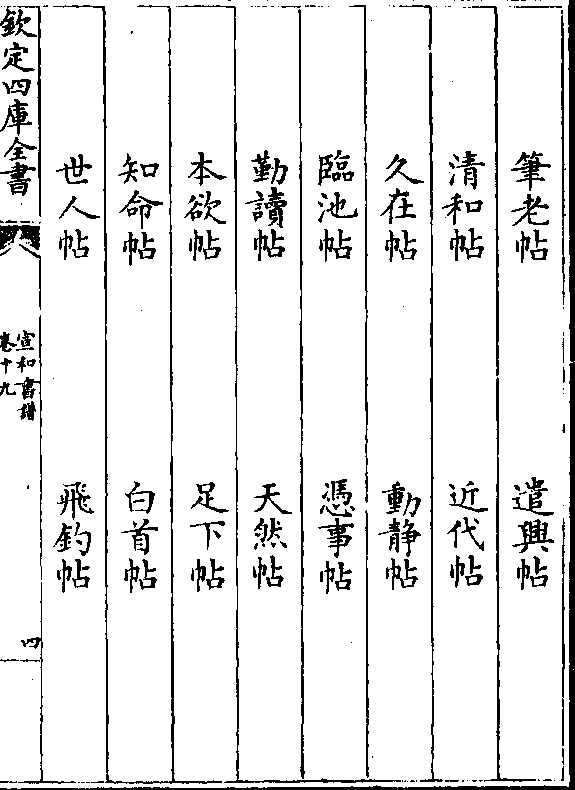 筆老帖　遣興帖
清和帖　近代帖
久在帖　動靜帖
臨池帖　憑事帖
勤讀帖　天然帖
本欲帖　足下帖
知命帖　白首帖
世人帖　飛釣帖
欽定四庫全書
宣和書譜
卷十九
四